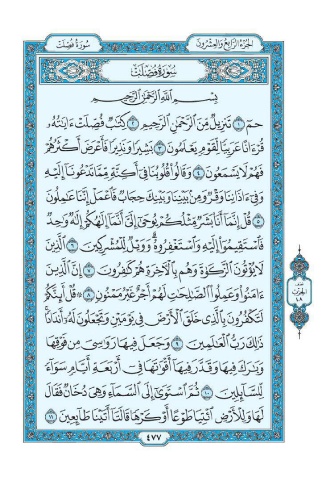 الجزء الرابع والعشرون
سورة فصلت
سورة فصلت
بِسْمِ اللَّهِ الرَّحْمَٰنِ الرَّحِيمِ
حمٓ ١ تَنزِيلٌ مِّنَ الرَّحْمَٰنِ الرَّحِيمِ ٢ كِتَٰبٌ فُصِّلَتْ ءَايَٰتُهُۥ
قُرْءَانًا عَرَبِيًّا لِّقَوْمٍ يَعْلَمُونَ ٣ بَشِيرًا وَنَذِيرًا فَأَعْرَضَ أَكْثَرُهُمْ
فَهُمْ لَا يَسْمَعُونَ ٤ وَقَالُوا۟ قُلُوبُنَا فِىٓ أَكِنَّةٍ مِّمَّا تَدْعُونَآ إِلَيْهِ
وَفِىٓ ءَاذَانِنَا وَقْرٌ وَمِنۢ بَيْنِنَا وَبَيْنِكَ حِجَابٌ فَٱعْمَلْ إِنَّنَا عَٰمِلُونَ
٥ قُلْ إِنَّمَآ أَنَا۠ بَشَرٌ مِّثْلُكُمْ يُوحَىٰٓ إِلَىَّ أَنَّمَآ إِلَٰهُكُمْ إِلَٰهٌ وَٰحِدٌ
فَٱسْتَقِيمُوٓا۟ إِلَيْهِ وَٱسْتَغْفِرُوهُ وَوَيْلٌ لِّلْمُشْرِكِينَ ٦ ٱلَّذِينَ
لَا يُؤْتُونَ ٱلزَّكَوٰةَ وَهُم بِٱلْءَاخِرَةِ هُمْ كَٰفِرُونَ ٧ إِنَّ ٱلَّذِينَ
ءَامَنُوا۟ وَعَمِلُوا۟ ٱلصَّٰلِحَٰتِ لَهُمْ أَجْرٌ غَيْرُ مَمْنُونٍ ٨ ۞ قُلْ أَئِنَّكُمْ
لَتَكْفُرُونَ بِٱلَّذِى خَلَقَ ٱلْأَرْضَ فِى يَوْمَيْنِ وَتَجْعَلُونَ لَهُۥٓ أَندَادًا
ذَٰلِكَ رَبُّ ٱلْعَٰلَمِينَ ٩ وَجَعَلَ فِيهَا رَوَٰسِىَ مِن فَوْقِهَا
وَبَٰرَكَ فِيهَا وَقَدَّرَ فِيهَآ أَقْوَٰتَهَا فِىٓ أَرْبَعَةِ أَيَّامٍ سَوَآءً
لِّلسَّآئِلِينَ ١٠ ثُمَّ ٱسْتَوَىٰٓ إِلَى ٱلسَّمَآءِ وَهِىَ دُخَانٌ فَقَالَ
لَهَا وَلِلْأَرْضِ ٱئْتِيَا طَوْعًا أَوْ كَرْهًا قَالَتَآ أَتَيْنَا طَآئِعِينَ ١١
الحزب
٤٨
٤٧٧